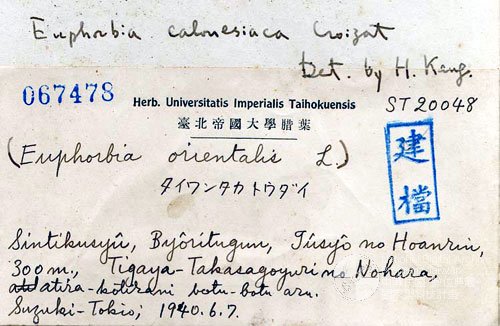 Euphorbia calonesiaca Croizat
Det. by H. Keng.
067478
Herb. Universitatis Imperialis Taihokuensis
ST20048
臺北帝國大學腊葉
(Euphorbia orientalis L.)
タイワンタカトウダイ
建檔
Sintikusyû, Byôritugun, Tûsyô no Hoanrin,
300m., Tigaya-Takasagoyuri no Nohara,
atira-kotirani botu-botu aru.
Suzuki-Tokio, 1940.6.7.